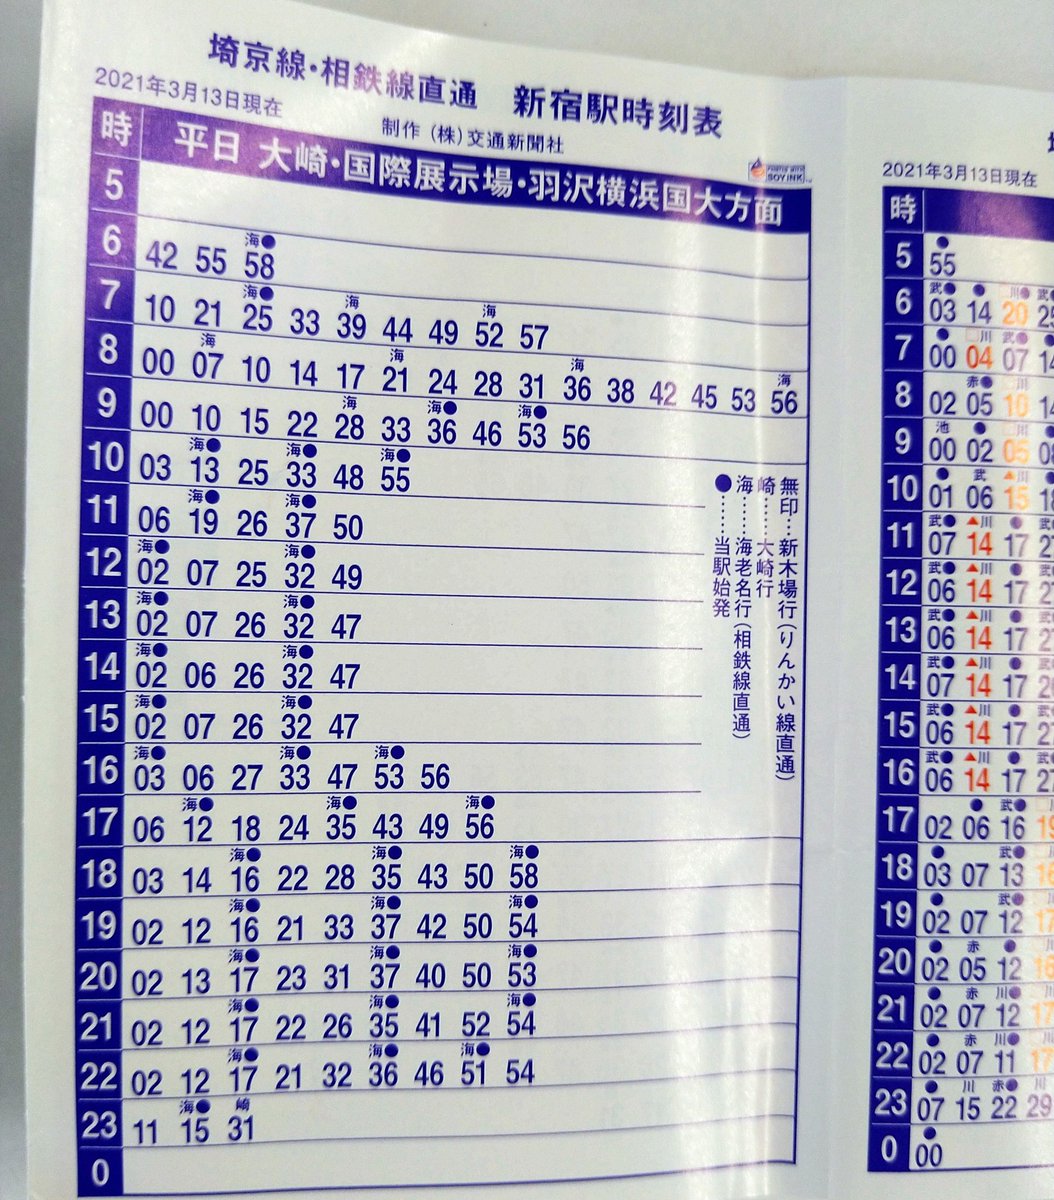 埼京線・相鉄線直通 新宿駅時刻表
2021年3月13日現在
制作 (株)交通新聞社
SOY INK
時 平日 大崎・国際展示場・羽沢横浜国大方面
5
海●
6 42 55 58
海● 海 海
7 10 21 25 33 39 44 49 52 57
海 海 海 海
8 00 07 10 14 17 21 24 28 31 36 38 42 45 53 56
海 海● 海●
9 00 10 15 22 28 33 36 46 53 56
海● 海● 海●
10 03 13 25 33 48 55
海● 海●
11 06 19 26 37 50
海● 海●
12 02 07 25 32 49
海● 海●
13 02 07 26 32 47
海● 海●
14 02 06 26 32 47
海● 海●
15 02 07 26 32 47
海● 海● 海●
16 03 06 27 33 47 53 56
海● 海● 海●
17 06 12 18 24 35 43 49 56
海● 海● 海●
18 03 14 16 22 28 35 43 50 58
海● 海● 海●
19 02 12 16 21 33 37 42 50 54
海● 海● 海●
20 02 13 17 23 31 37 40 50 53
海● 海● 海●
21 02 12 17 22 26 35 41 52 54
海● 海● 海●
22 02 12 17 21 32 36 46 51 54
海● 崎
23 11 15 31
0
無印…新木場行(りんかい線直通)
崎……大崎行
海……海老名行(相鉄線直通)
●……当駅始発
2021年3月13日現在
時
●
5 55
武● ● 川●
6 03 14 20 25
● 川 武●
7 00 04 07 14
赤● 川
8 02 05 10
池 ● 川
9 00 02 05
● 武 ▲川
10 01 06 15
武● ▲川 ●
11 07 14 17
武● ▲川 ●
12 06 14 17
武● ▲川 ●
13 06 14 17
武● ▲川 ●
14 07 14 17
武● ▲川 ●
15 06 14 17
武● ▲川 ●
16 06 14 17
● 武●
17 02 06 16
● 武●
18 03 07 13
● 武●
19 02 07 12
● 赤 ●
20 02 05 12
● 赤 川●
21 02 07 12
● 赤 川●
22 02 07 11
● 川 赤● 川
23 07 15 22 29
●
0 00